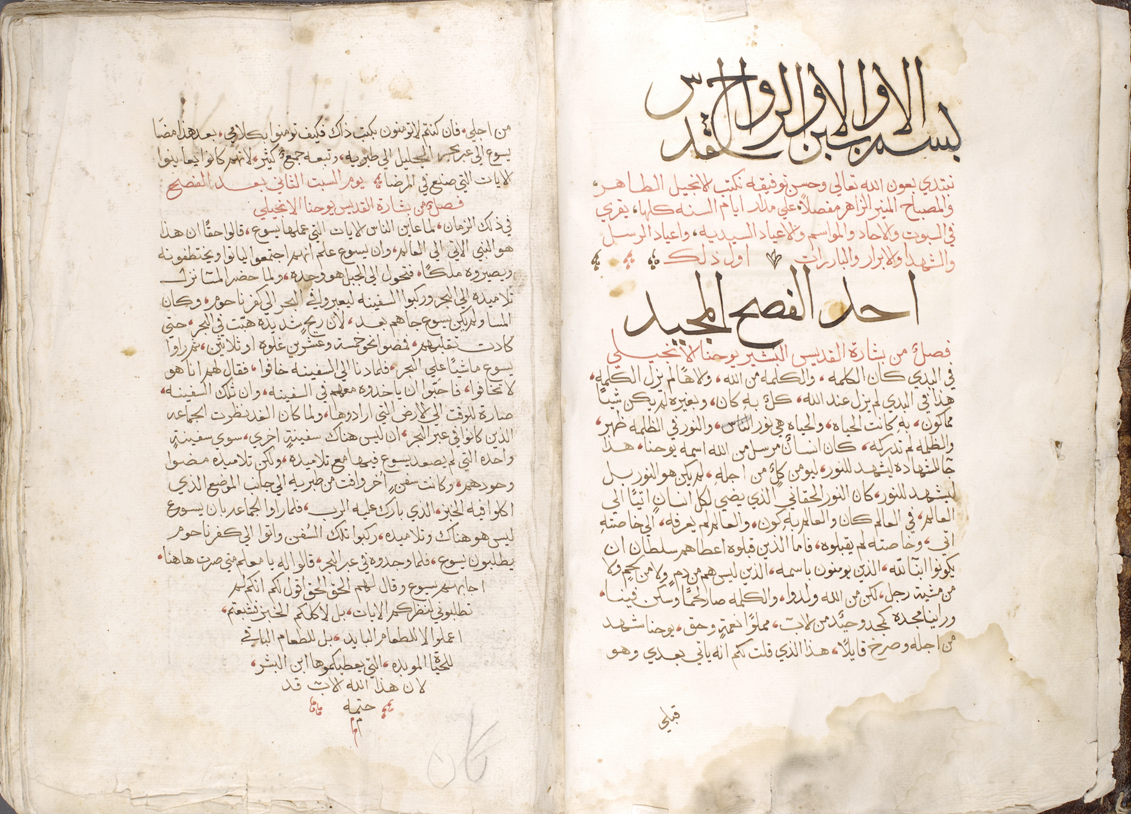 بسم الاب والابن والروح القدس
نبتدي بعون الله تعالى وحسن توفيقه نكتب لانجيل الطاهر
والمصباح المنير الزاهر مفصلا علي مدار ايام السنه كلها، يقري
في السبوت ولاحاد والمواسم ولاعياد السيديه، واعياد الرسل
والشهدا ولابرار والبارات اول ذلك
احد الفصح المجيد
فصل من بشارة القديس البشير يوحنا لانجيلي
في البدي كان الكلمه، والكلمه من الله، ولاها لم يزل الكلمه،
هذا في البدي لم يزل عند الله، كل به كان، وبغيره لم يكن شيئا
مما كون، به كانت الحياه، والحياه هي نور الناس، والنور في الظلمه ظهر،
والظلمه لم تدركه، كان انسان مرسل من الله اسمه يوحنا، هذا
جا للشهاده ليشهد للنور، ليومن كل من اجله، لم يكن هو النور بل
ليشهد للنور، كان النور الحقاني الذي يضي لكل انسان اتيا الي
العالم، في العالم كان والعالم به كون، والعالم لم يعرفه، الي خاصته
اتي، وخاصته لم يقبلوه، فاما الذين قبلوه اعطاهم سلطان ان
يكونوا ابنا لله الذين يومنون باسمه، الذين ليس هم من دم، ولا من لحم ولا
من مشية رجل، لكن من الله ولدوا، والكلمه صار لحما وسكن فينا،
وراينا مجده كمجد وحيد من لاب، مملوا نعمة وحق، يوحنا شهد
من اجله وصرخ قايلا، هذا الذي قلت لكم انه ياتي بعدي وهو
قبلي
من اجلي، فان كنتم لا تومنون بكتب ذاك فكيف تومنوا بكلامي، بعد هذا مضا
يسوع الي عبر بحر الجليل الي طبريه، وتبعه جمع كثير، لانهم كانوا يعاينوا
لايات التي صنع في المرضا، يوم السبت الثاني بعد الفصح
فصل من بشارة القديس يوحنا الانجيلي
في ذلك الزمان، لما عاين الناس لايات التي عملها يسوع، قالوا حقا ان هذا
هو النبي الاتي الي العالم، وان يسوع علم انهم اجتمعوا لياتوا ويختطفونه
ويصيروه ملكا، فتحول الي الجبل هو وحده، ولما حضر المسا نزل
تلاميذه الي البحر وركبوا السفينه ليعبروا في البحر الي كفرناحوم، وكان
المسا ولم يكن يسوع جاهم بعد، لان ريح شديده هبت في البحر، حتي
كادت تقلبهم، فمضوا نحو خمسة وعشرين غلوه او ثلاثين، ثم راوا
يسوع ماشيا علي البحر، فلما دنا الي السفينه خافوا، فقال لهم انا هو
لا تخافوا، فاحبوا ان ياخدوه معهم في السفينه، وان تلك السفينه،
صارة للوقت الي لارض التي ارادوها، ولما كان الغد نظرت الجماعه
الذين كانوا في عبر البحر، ان ليس هناك سفينة اخري، سوي سفينة
واحده التي لم يصعد يسوع فيها مع تلاميذه، ولكن تلاميذه مضوا
وحودهم، وكانت سفن اخر وافت من طبريه الي جانب الموضع الذي
اكلوا فيه الخبز، الذي بارك عليه الرب، فلما راوا الجماعه بان يسوع
ليس هو هناك وتلاميذه، ركبوا تلك السفن واتوا الي كفرناحوم
يطلبون يسوع، فلما وجدوه في عبر البحر، قالوا له يا معلم متي صرت هاهنا،
اجابهم يسوع وقال لهم الحق الحق اقول لكم انكم لم
تطلبوني لنظركم الايات، بل لاكلكم الخبز فشبعتم،
اعملوا لا للطعام البايد، بل للطعام الباقي
للحيا الموبده، التي يعطيكموها ابن البشر،
لان هذا الله لاب قد
ختمه
كان